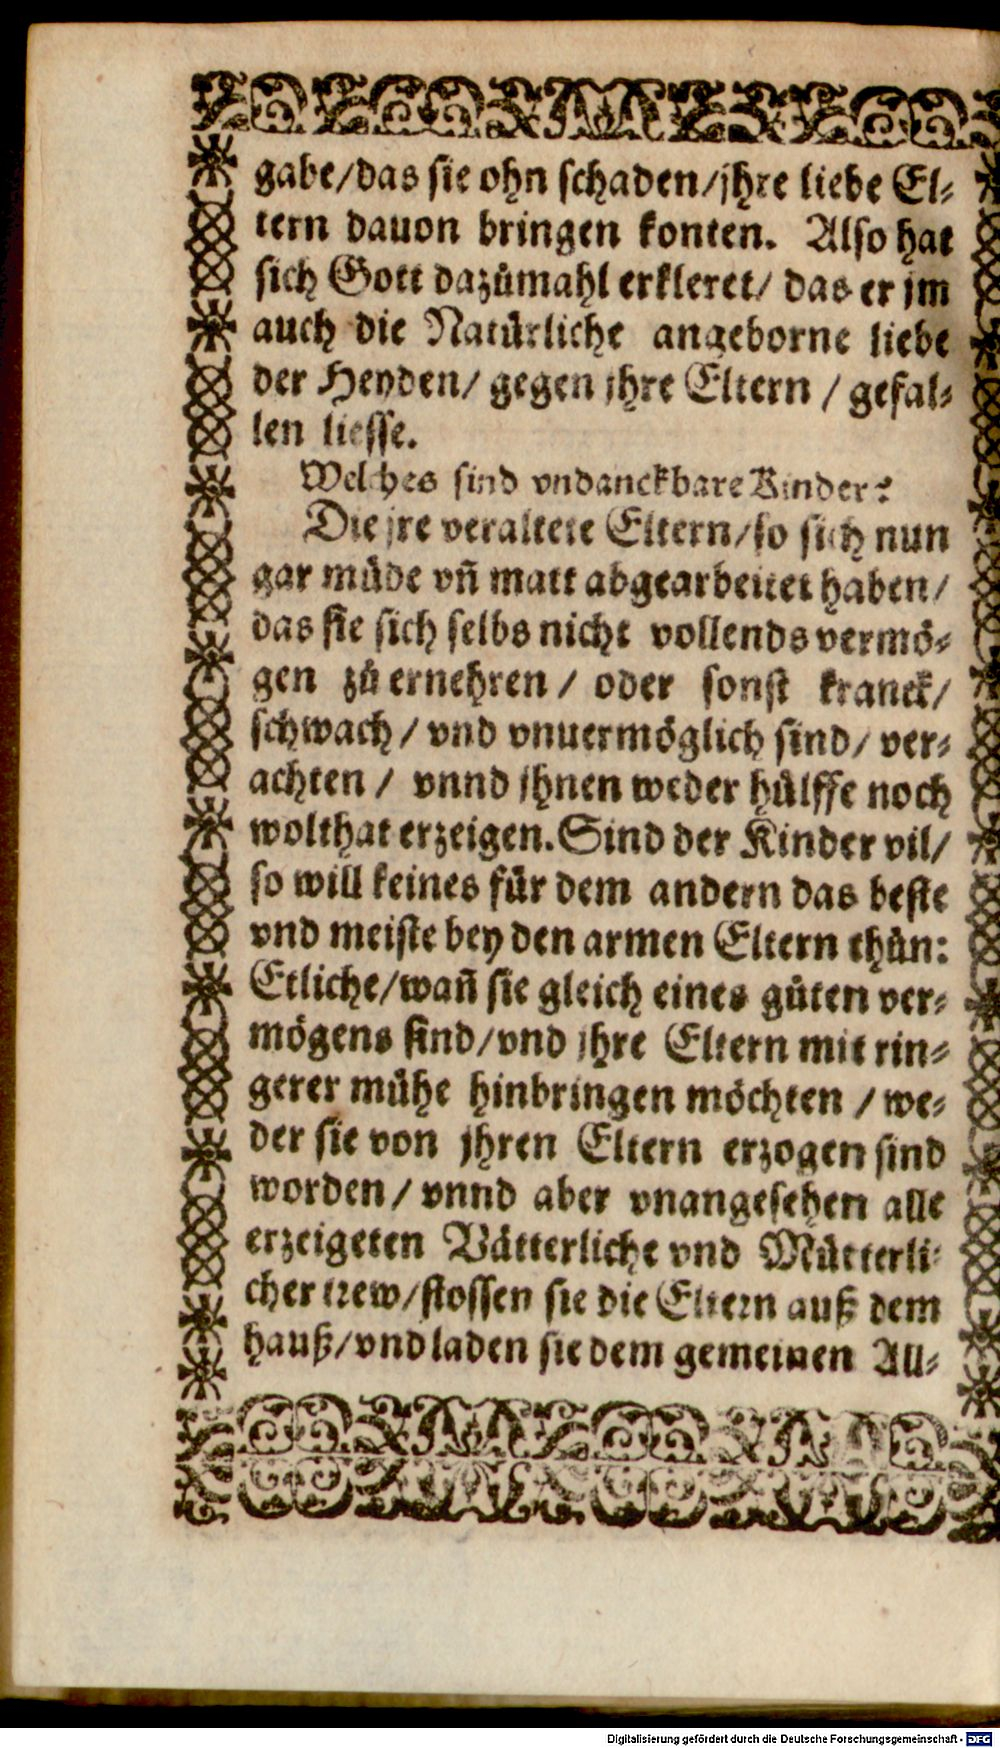 gabe/das sie ohn schaden/jhre liebe El⸗
tern dauon bringen konten. Also hat
sich Gott dazůmahl erkleret/ das er jm
auch die Natürliche angeborne liebe
der Heyden/ gegen jhre Eltern / gefal⸗
len liesse.
Welches sind vndanckbare Kinder?
Die jre veraltete Eltern/so sich nun
gar müde vñ matt abgearbeitet haben/
das sie sich selbs nicht vollends vermö⸗
gen zů ernehren / oder sonst kranck/
schwach / vnd vnuermöglich sind/ ver⸗
achten / vnnd jhnen weder hülffe noch
wolthat erzeigen. Sind der Kinder vil/
so will keines für dem andern das beste
vnd meiste bey den armen Eltern thůn:
Etliche/wañ sie gleich eines gůten ver⸗
mögens sind/vnd jhre Eltern mit rin⸗
gerer mühe hinbringen möchten / we⸗
der sie von jhren Eltern erzogen sind
worden / vnnd aber vnangesehen alle
erzeigeten Vätterliche vnd Mütterli⸗
cher trew/stossen sie die Eltern auß dem
hauß/vnd laden sie dem gemeinen All⸗
Digitalisierung gefördert durch die Deutsche Forschungsgemeinschaft - DFG